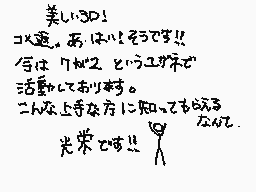 美しい3D！
コメ返。あ、はい！そうです!!
今は クがユ というユザネで
活動しております。
こんな上手な方に知ってもらえる
なんて、
光栄です!!